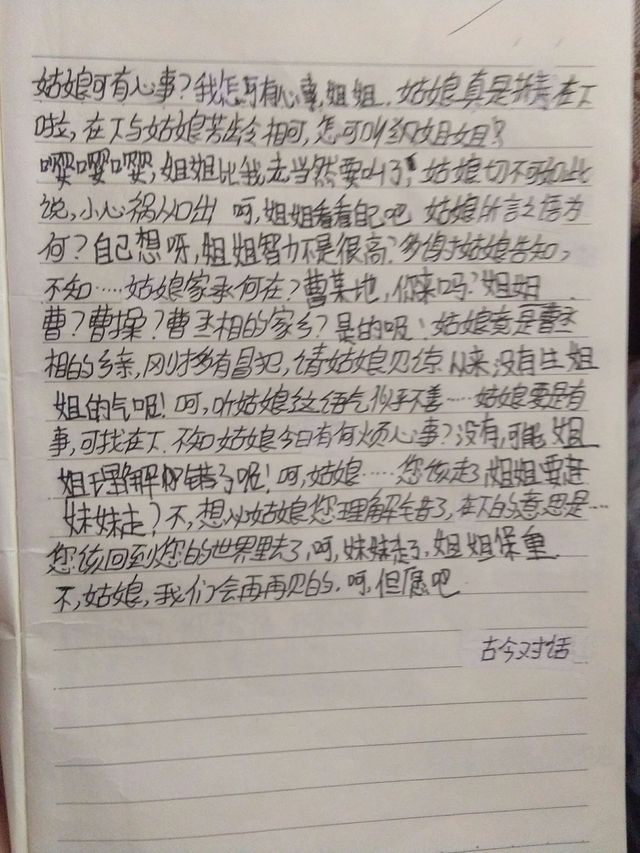 姑娘可有心事？我怎可有心事，姐姐。姑娘真是折煞在下
啦，在下与姑娘芳龄相可，怎可叫姐姐？
嘤嘤嘤，姐姐比我老当然要叫了！姑娘切不可如此
说，小心祸从口出 呵，姐姐看看自己吧 姑娘所言之语为
何？自己想呀，姐姐智力不是很高？多得于姑娘告知，
不知……姑娘家乘何在？曹某地，你来吗？姐姐
曹？曹操？曹丞相的家乡？是的呢！姑娘竟是曹丞
相的乡亲，刚才多有冒犯，请姑娘见谅 从来没有生姐
姐的气呢！呵，听姑娘这语气似乎不善……姑娘要是有
事，可找在下 不知姑娘今日有何烦心事？没有，可能姐
姐理解错了呢！呵，姑娘……您该走了 姐姐要赶
妹妹走？不，想必姑娘您理解错了，在下的意思是……
您该回到您的世界里去了，呵，妹妹走了，姐姐保重
不，姑娘，我们会再再见的，呵，但愿吧
古今对话